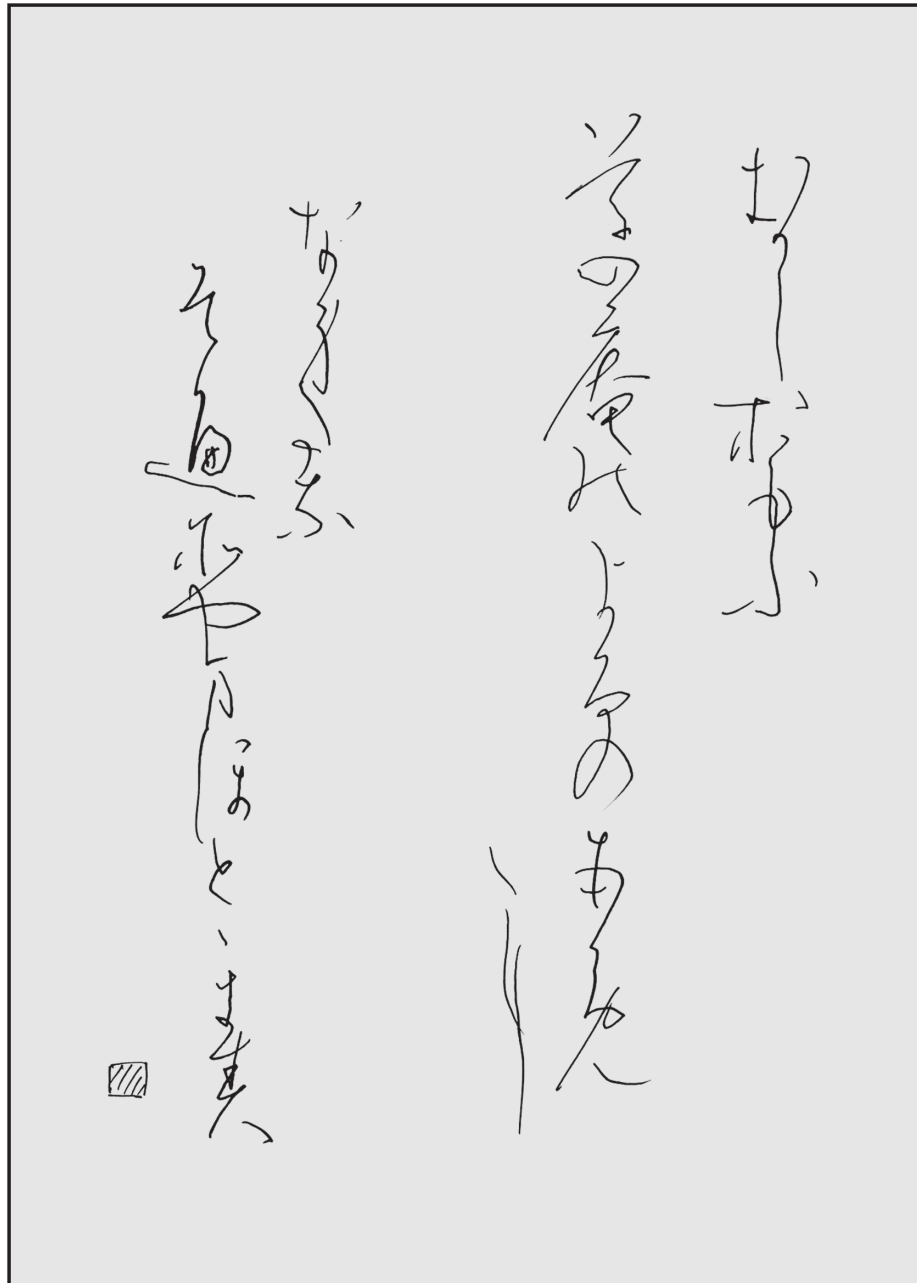 むかしおもふ
草の庵のよるのあめ
に
なみたな
そへそやまほとゝきす